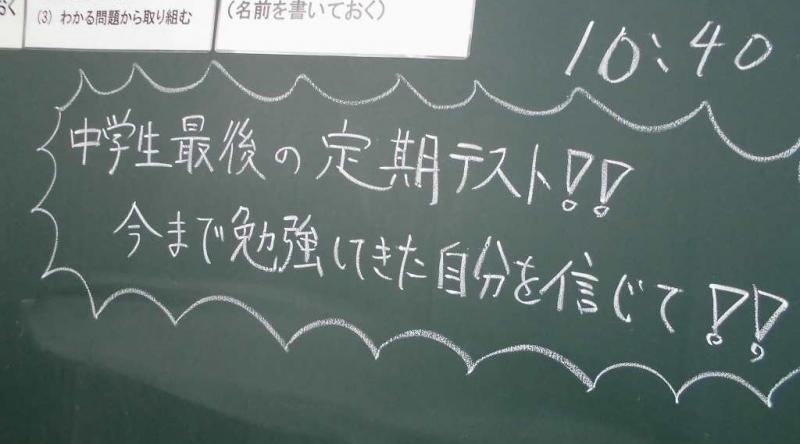 おく
(3) わかる問題から取り組む
(名前を書いておく)
10:40
中学生最後の定期テスト!!
今まで勉強してきた自分を信じて!!